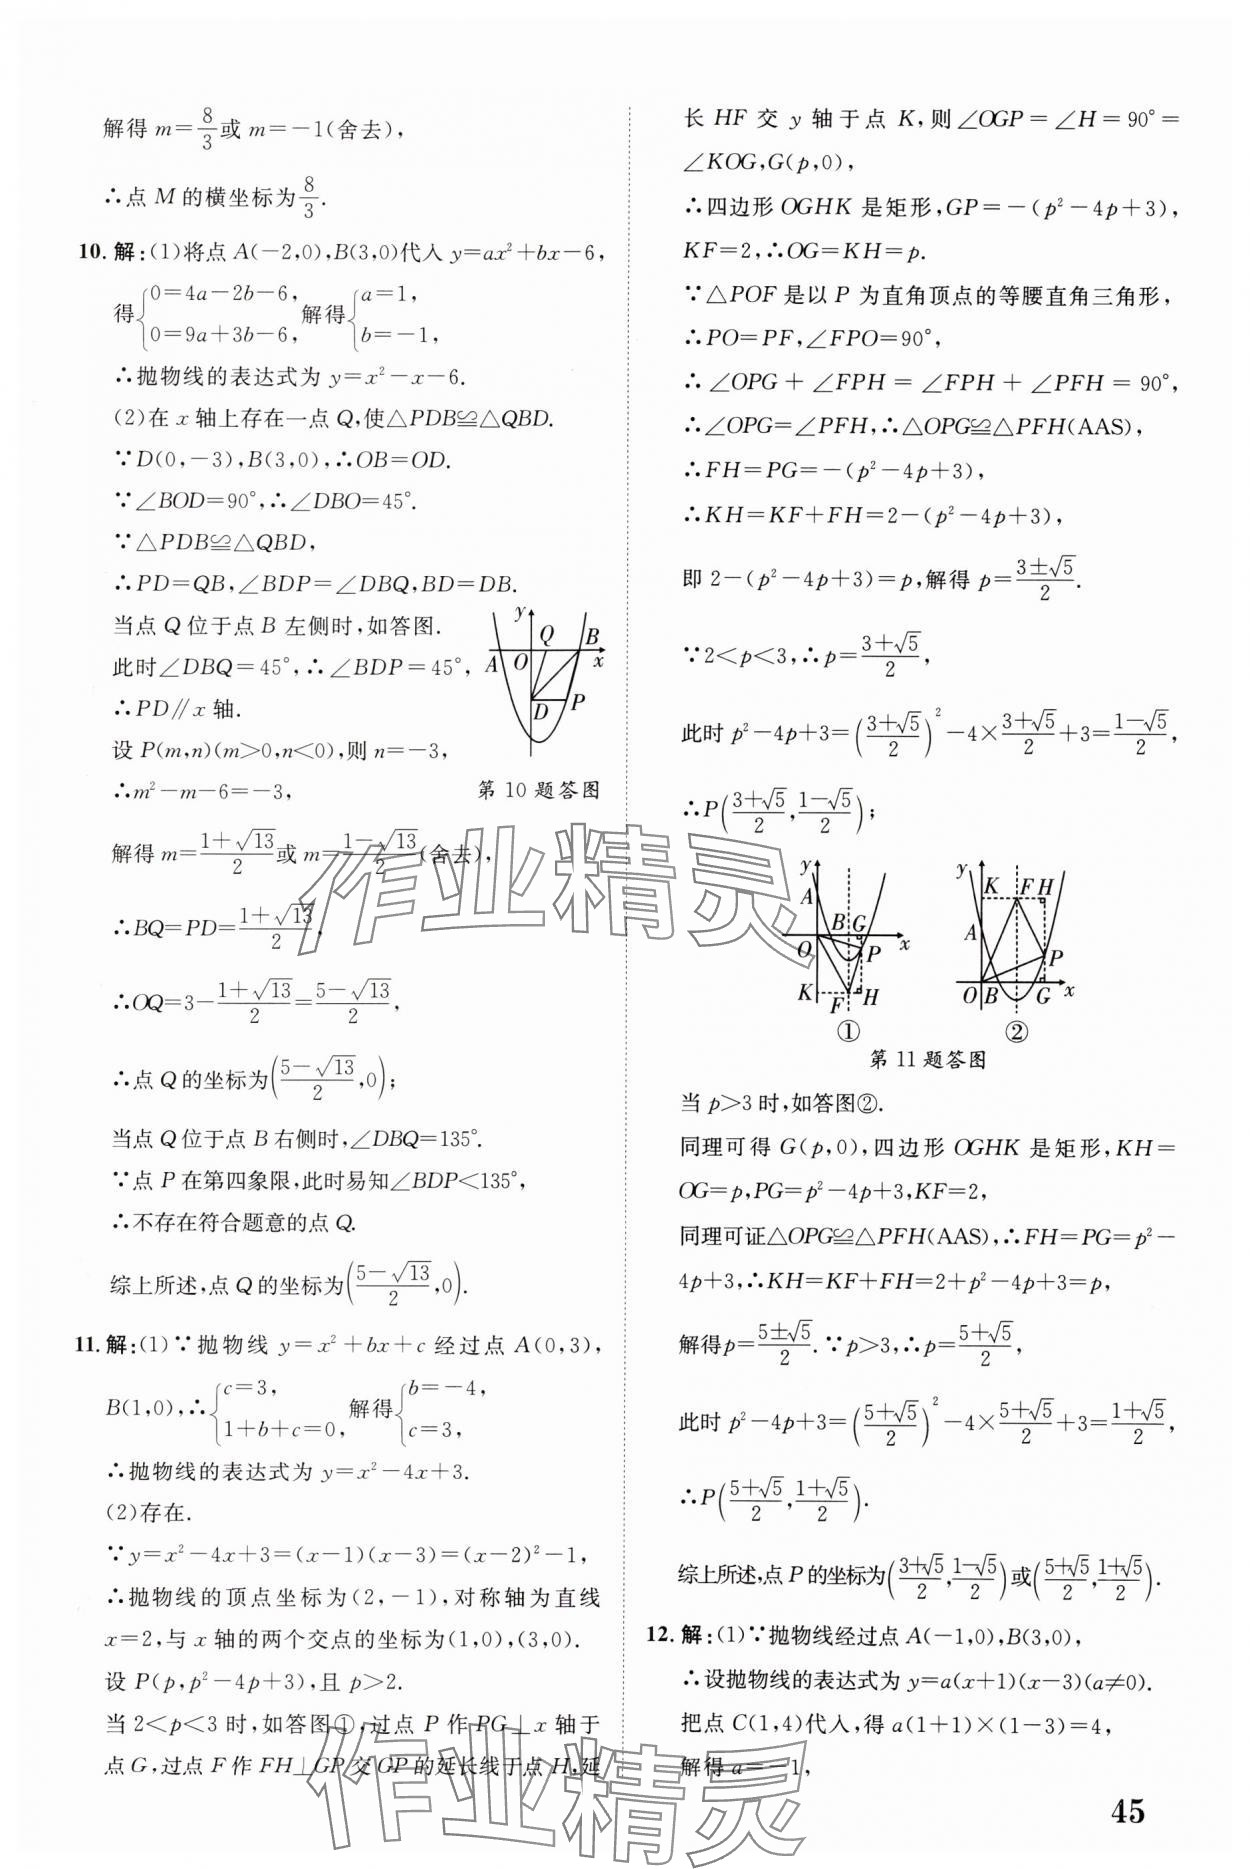 解得 m=8/3或 m=-1(舍去),
∴点 M 的横坐标为8/3.
10. 解:(1)将点 A(-2,0),B(3,0)代入 y=ax²+bx-6,
得{0=4a-2b-6, 0=9a+3b-6, 解得{a=1, b=-1,
∴抛物线的表达式为 y=x²-x-6.
(2)在 x 轴上存在一点 Q,使△PDB≌△QBD.
∵D(0,-3),B(3,0),∴OB=OD.
∵∠BOD=90°,∴∠DBO=45°.
∵△PDB≌△QBD,
∴PD=QB,∠BDP=∠DBQ,BD=DB.
当点 Q 位于点 B 左侧时,如答图.
此时∠DBQ=45°,∴∠BDP=45°,
∴PD∥x 轴.
设 P(m,n)(m>0,n<0),则 n=-3,
∴m²-m-6=-3,
y Q B A O x D P
第 10 题答图
解得 m=(1+√13)/2或 m=(1-√13)/2(舍去),
∴BQ=PD=(1+√13)/2,
∴OQ=3-(1+√13)/2=(5-√13)/2,
∴点 Q 的坐标为((5-√13)/2,0);
当点 Q 位于点 B 右侧时,∠DBQ=135°.
∵点 P 在第四象限,此时易知∠BDP<135°,
∴不存在符合题意的点 Q.
综上所述,点 Q 的坐标为((5-√13)/2,0).
11. 解:(1)∵抛物线 y=x²+bx+c 经过点 A(0,3),
B(1,0),∴{c=3, 1+b+c=0, 解得{b=-4, c=3,
∴抛物线的表达式为 y=x²-4x+3.
(2)存在.
∵y=x²-4x+3=(x-1)(x-3)=(x-2)²-1,
∴抛物线的顶点坐标为(2,-1),对称轴为直线
x=2,与 x 轴的两个交点的坐标为(1,0),(3,0).
设 P(p,p²-4p+3),且 p>2.
当 2<p<3 时,如答图①,过点 P 作 PG⊥x 轴于
点 G,过点 F 作 FH⊥GP 交 GP 的延长线于点 H,延
长 HF 交 y 轴于点 K,则∠OGP=∠H=90°=
∠KOG,G(p,0),
∴四边形 OGHK 是矩形,GP=-(p²-4p+3),
KF=2,∴OG=KH=p.
∵△POF 是以 P 为直角顶点的等腰直角三角形,
∴PO=PF,∠FPO=90°,
∴∠OPG+∠FPH=∠FPH+∠PFH=90°,
∴∠OPG=∠PFH,∴△OPG≌△PFH(AAS),
∴FH=PG=-(p²-4p+3),
∴KH=KF+FH=2-(p²-4p+3),
即 2-(p²-4p+3)=p,解得 p=(3±√5)/2.
∵2<p<3,∴p=(3+√5)/2,
此时 p²-4p+3=((3+√5)/2)²-4×(3+√5)/2+3=(1-√5)/2,
∴P((3+√5)/2,(1-√5)/2);
y A B G O x P K F H
①
y K F H A P O B G x
②
第 11 题答图
当 p>3 时,如答图②.
同理可得 G(p,0),四边形 OGHK 是矩形,KH=
OG=p,PG=p²-4p+3,KF=2,
同理可证△OPG≌△PFH(AAS),∴FH=PG=p²-
4p+3,∴KH=KF+FH=2+p²-4p+3=p,
解得p=(5±√5)/2.∵p>3,∴p=(5+√5)/2,
此时 p²-4p+3=((5+√5)/2)²-4×(5+√5)/2+3=(1+√5)/2,
∴P((5+√5)/2,(1+√5)/2).
综上所述,点 P 的坐标为((3+√5)/2,(1-√5)/2)或((5+√5)/2,(1+√5)/2).
12. 解:(1)∵抛物线经过点 A(-1,0),B(3,0),
∴设抛物线的表达式为 y=a(x+1)(x-3)(a≠0).
把点 C(1,4)代入,得 a(1+1)×(1-3)=4,
解得 a=-1,
45
作业精灵
作业精灵